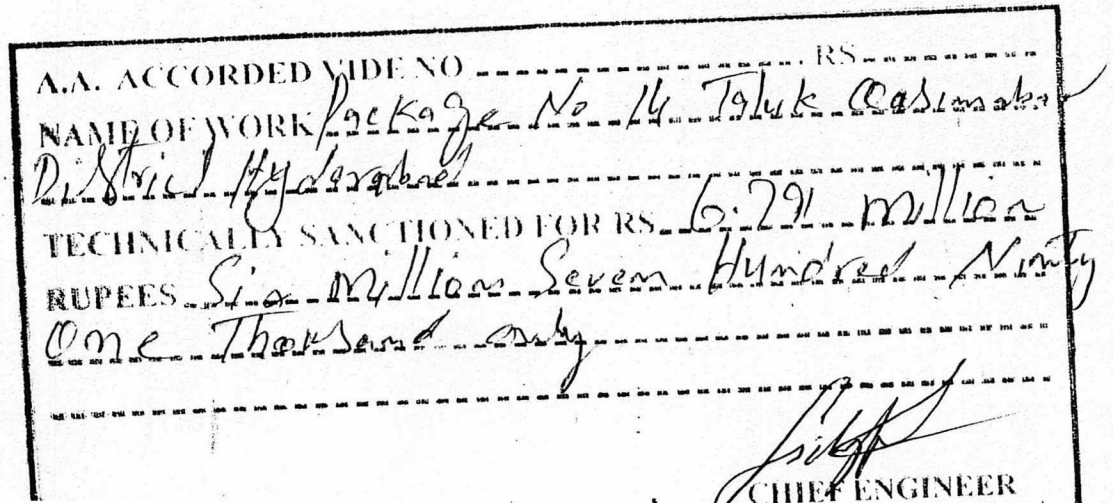 A.A. ACCORDED VIDE NO ............ RS ............
NAME OF WORK Package No 14 Taluk Qasimabad
District Hyderabad
TECHNICALLY SANCTIONED FOR RS 6.791 Million
RUPEES Six Million Seven Hundred Ninty
One Thousand only
CHIEF ENGINEER